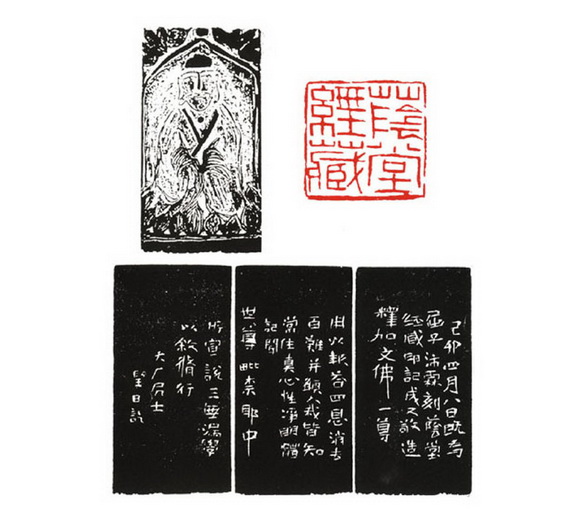 蔭堂
經藏
己卯四月八日既為
屈子沛霖刻蔭堂
經藏印記成又敬造
釋加文佛一尊
用以報答四恩消去
百難并願人我皆知
常住真心性淨明體
聞
世尊毗柰耶中
所宣說三無漏學
以敘脩行
大厂居士
翌日記